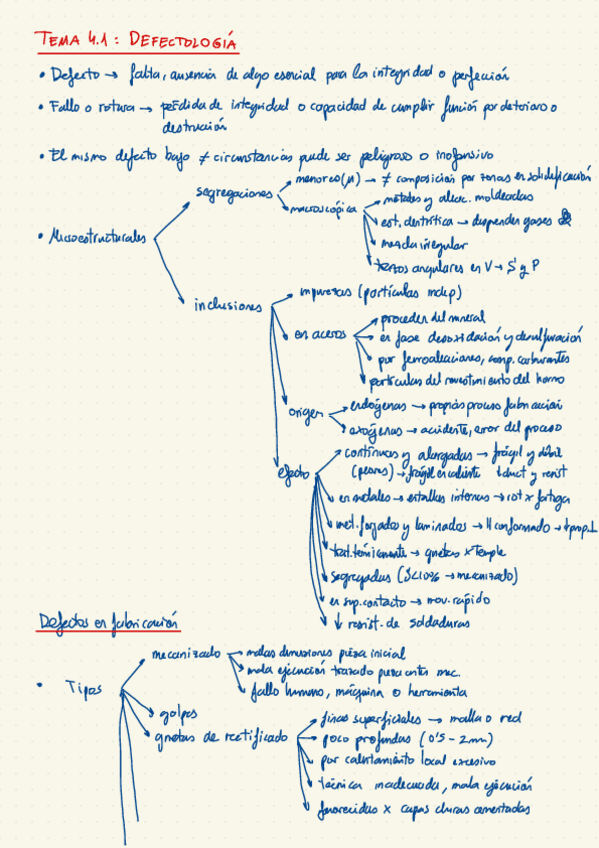 TEMA 4.1: DEFECTOLOGÍA
• Defecto → falta, ausencia de algo esencial para la integridad o perfección
• Fallo o rotura → pérdida de integridad o capacidad de cumplir función por deterioro o
destrucción
• El mismo defecto bajo ≠ circunstancias puede ser peligroso o inofensivo
menores (μ) → ≠ composición por zonas en solidificación
segregaciones
macroscópica
metales y aleac. moldeadas
est. dentrítica → desprender gases
mezcla irregular
trazos angulares en V → S y P
• Microestructurales
inclusiones
impurezas (partículas indep)
en aceros
proceden del mineral
en fase desoxidación y desulfuración
por ferroaleaciones, comp. carburantes
partículas del revestimiento del horno
origen
endógenas → propias proceso fabricación
exógenas → accidente, error del proceso
efecto
continuas y alargadas → frágil y débil
(peores) → frágil en caliente ↓duct y resist
en metales → estallos internos → rot x fatiga
met. forjados y laminados → || conformado → ↑prop. ⊥
trat. térmicamente → grietas x temple
segregadas (S<10% → mecanizado)
en sup. contacto → mov. rápido
↓ resist. de soldaduras
Defectos en fabricación
• Tipos
mecanizado
malas dimensiones pieza inicial
mala ejecución trazado pieza antes mec.
fallo humano, máquina o herramienta
golpes
grietas de rectificado
finas superficiales → malla o red
poco profundas (0'5 - 2mm)
por calentamiento local excesivo
técnica inadecuada, mala ejecución
favorecidas x capas duras cementadas